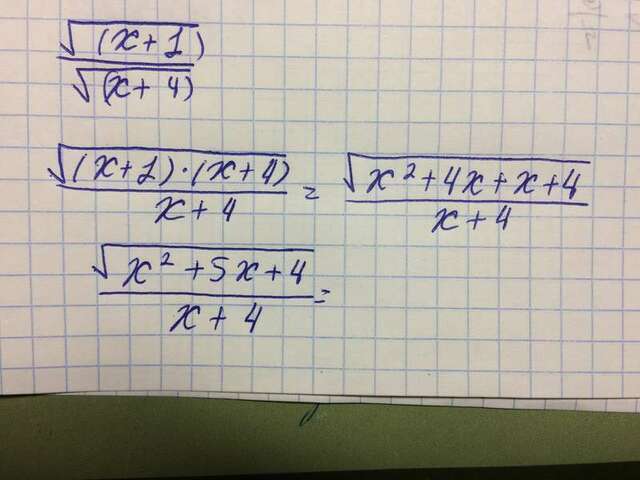 √(x+1) / √(x+4)
√((x+1)·(x+4)) / x+4 = √(x²+4x+x+4) / x+4
√(x²+5x+4) / x+4 =